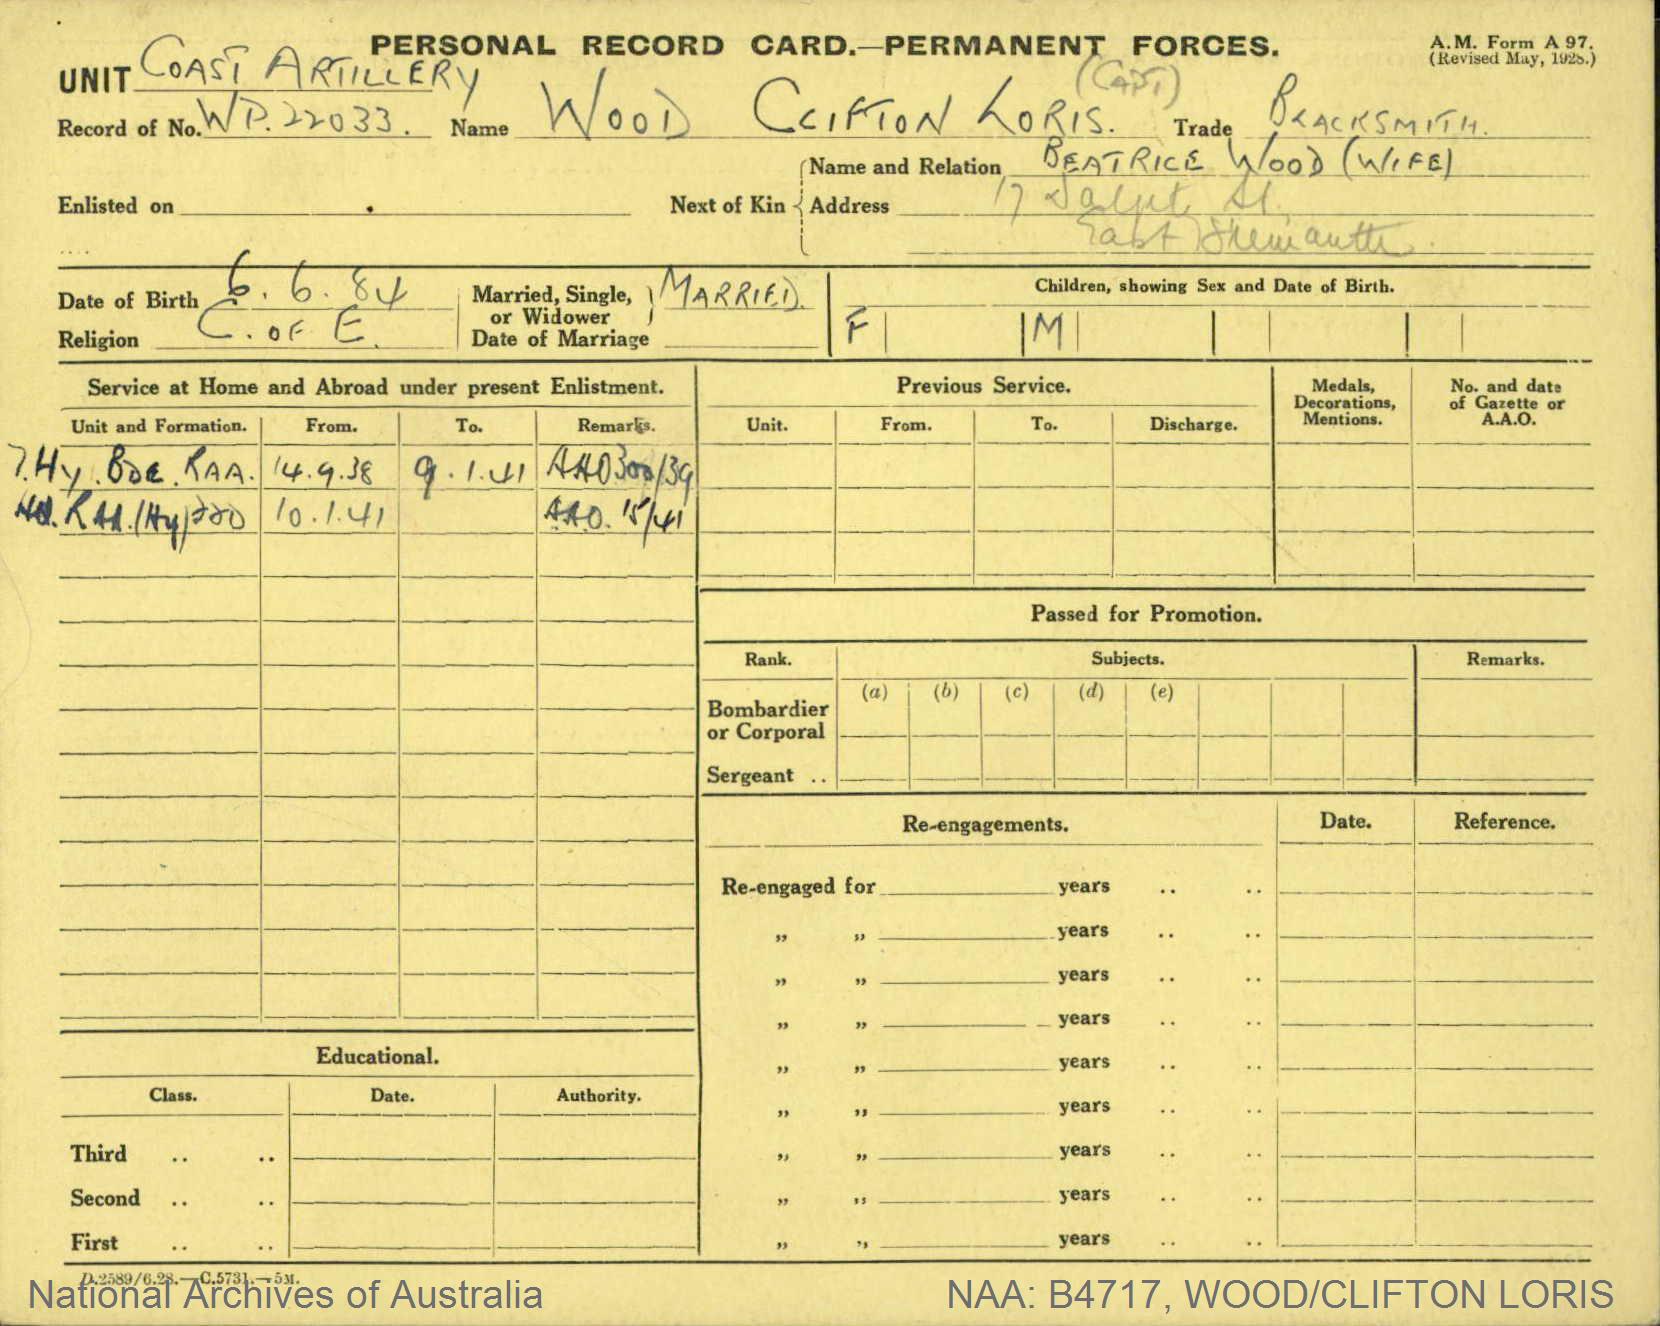 PERSONAL RECORD CARD.—PERMANENT FORCES.
A.M. Form A 97.
(Revised May, 1928.)
UNIT COAST ARTILLERY
(CAPT)
Record of No. WP.22033. Name WOOD CLIFTON LORIS. Trade BLACKSMITH.
Name and Relation BEATRICE WOOD (WIFE)
Enlisted on . Next of Kin Address 17 St.
East Fremantle.
Date of Birth 6.6.84 Married, Single, or Widower MARRIED. Children, showing Sex and Date of Birth.
Religion C. OF E. Date of Marriage F M
Service at Home and Abroad under present Enlistment. Previous Service. Medals, Decorations, Mentions. No. and date of Gazette or A.A.O.
Unit and Formation. From. To. Remarks. Unit. From. To. Discharge.
7.Hy. BDE. RAA. 14.9.38 9.1.41 AHO300/39
HQ. RAA.(Hy) 10.1.41 AAO. 15/41
Passed for Promotion.
Rank. Subjects. Remarks.
(a) (b) (c) (d) (e)
Bombardier
or Corporal
Sergeant ..
Re-engagements. Date. Reference.
Re-engaged for years .. ..
„ „ years .. ..
„ „ years .. ..
„ „ years .. ..
„ „ years .. ..
„ „ years .. ..
„ „ years .. ..
„ „ years .. ..
„ „ years .. ..
Educational.
Class. Date. Authority.
Third .. ..
Second .. ..
First .. ..
D.2589/6.28.—C.5731.—5M.
National Archives of Australia NAA: B4717, WOOD/CLIFTON LORIS